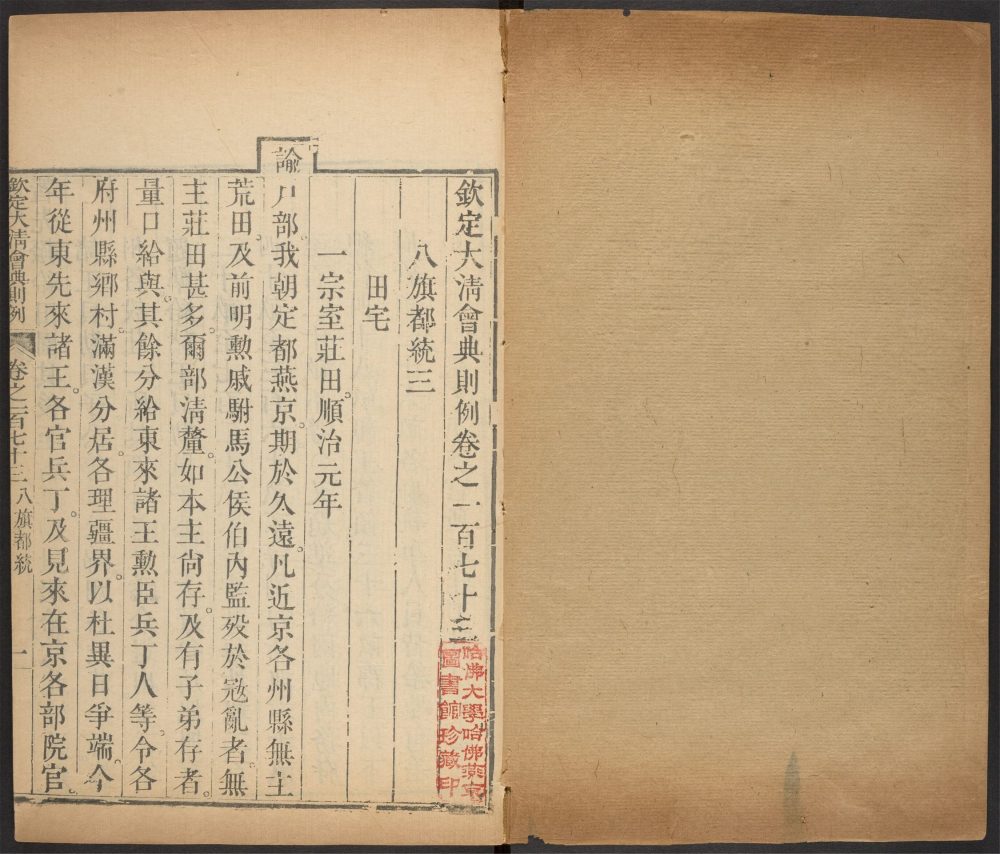 欽定大淸會典則例卷之一百七十三
八旗都統三
田宅
一宗室莊田。順治元年
諭戸部。我朝定都燕京。期於久遠。凡近京各州縣無主
荒田。及前明勲戚駙馬公侯伯內監歿於冦亂者。無
主莊田甚多。爾部淸釐。如本主尙存。及有子弟存者。
量口給與。其餘分給東來諸王勲臣兵丁人等。令各
府州縣鄉村。滿漢分居。各理疆界。以杜異日爭端。今
年從東先來諸王。各官兵丁。及見來在京各部院官。
欽定大淸會典則例
卷之一百七十三 八旗都統
一
哈佛大學哈佛燕京
圖書館珍藏印